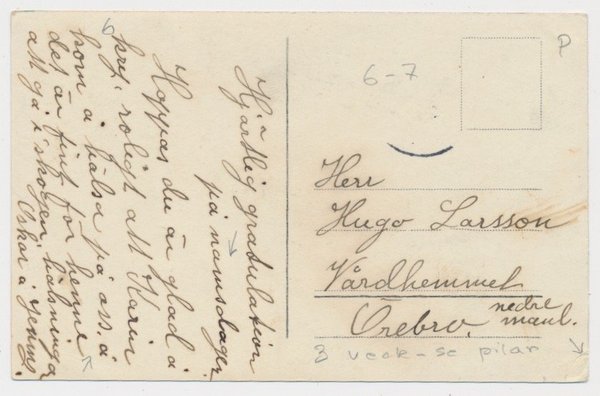 Hj. a
Hjärtlig gratulation
på namnsdagen
Hoppas du är glad å
kry, roligt att Karin
kom å hälsa på oss å
det är fint för henne
att gå i skogen hälsningar
Oskar å Jenny.
6
6-7
P
Herr
Hugo Larsson
Vårdhemmet
Örebro.
nedre
3 veck-se pilar